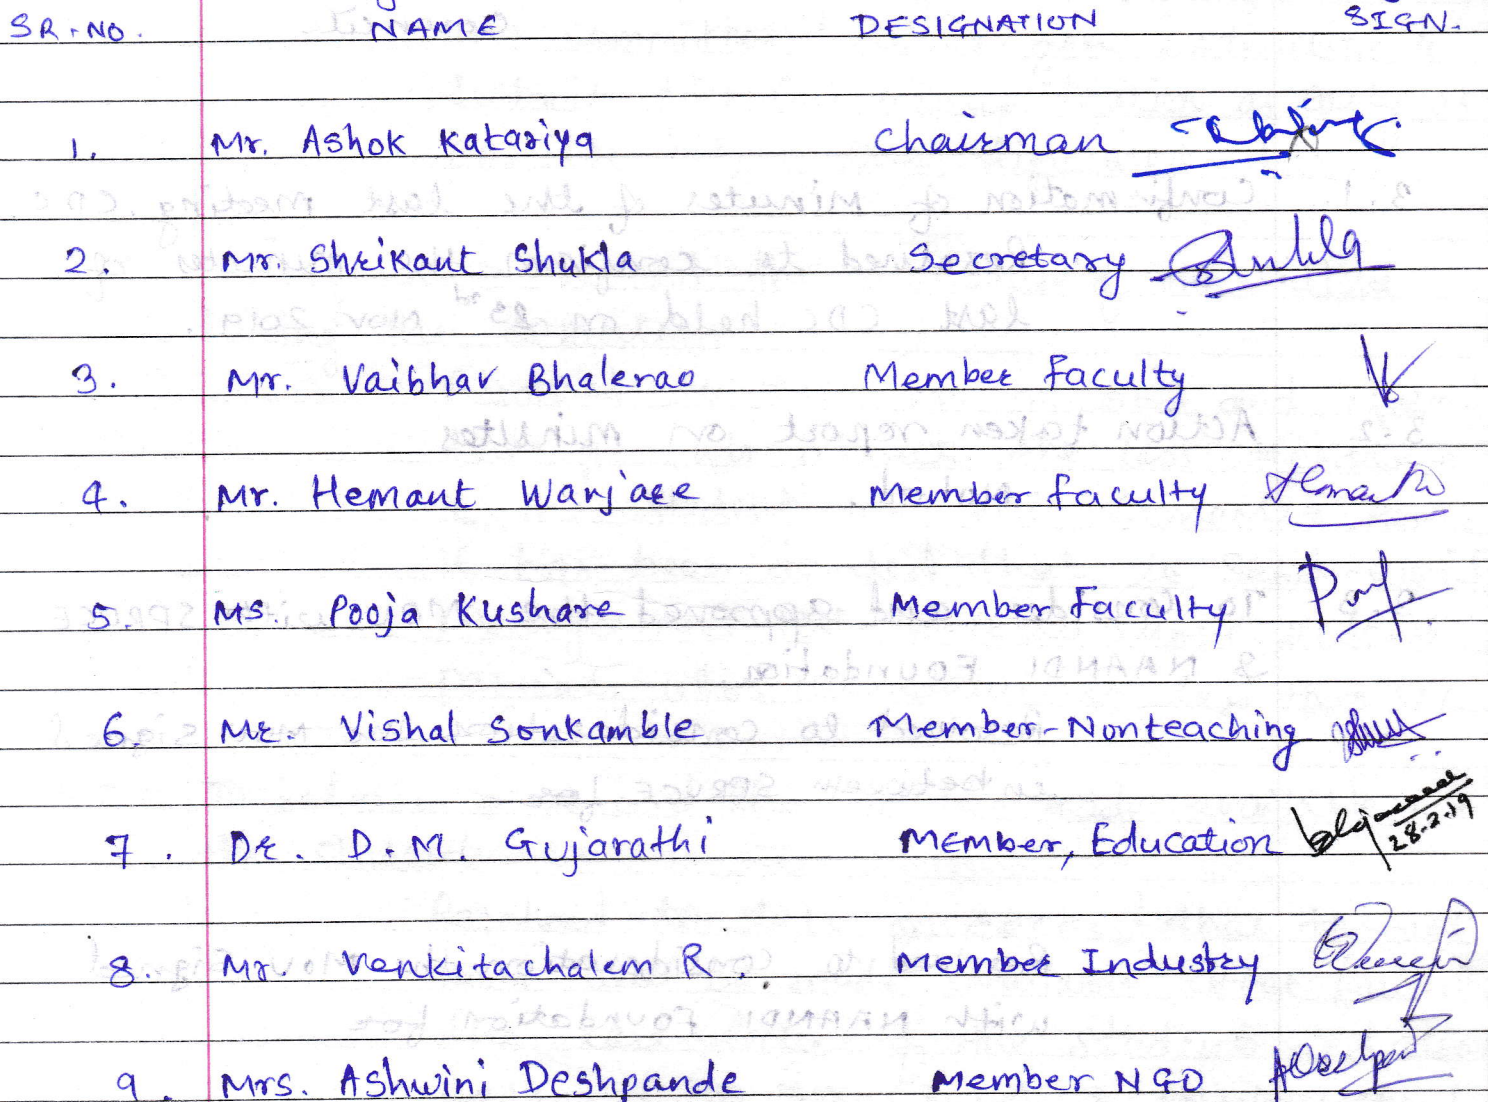 SR. NO. NAME DESIGNATION SIGN.
1. Mr. Ashok Katariya Chairman
2. Mr. Shrikant Shukla Secretary Shukla
3. Mr. Vaibhav Bhalerao Member Faculty
4. Mr. Hemant Warjare Member faculty
5. Ms. Pooja Kushare Member Faculty
6. Mr. Vishal Sonkamble Member-Nonteaching
7. Dr. D.M. Gujarathi Member, Education 28.2.19
8. Mr. Venkitachalem R. Member Industry
9. Mrs. Ashwini Deshpande Member NGO